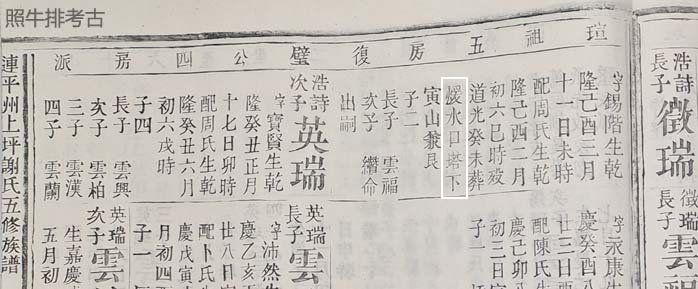 照牛排考古
浩詩長子
徵瑞
徵瑞長子
雲
瑄祖五房復璧公四房派
字錫階生乾
隆己酉三月
十一日未時
配周氏生乾
隆己酉二月
初六巳時歿
道光癸未葬
煖水口塔下
寅山兼艮
子二
長子 雲福
次子 繼命
出嗣
字永康生
慶癸酉八
廿三日酉
配陳氏生
慶己卯八
初三日寅
子一
浩詩次子
英瑞
字寶賢生乾
隆癸丑正月
十七日卯時
配周氏生乾
隆癸丑六月
初六戌時
子四
長子 雲興
次子 雲柏
三子 雲漢
四子 雲蘭
英瑞長子
雲
字沛然生
慶乙亥
廿八日
配卜氏生
慶戊寅
三月初四
子一
英瑞次子
雲
生嘉慶
五月初
連平州上坪謝氏五修族譜